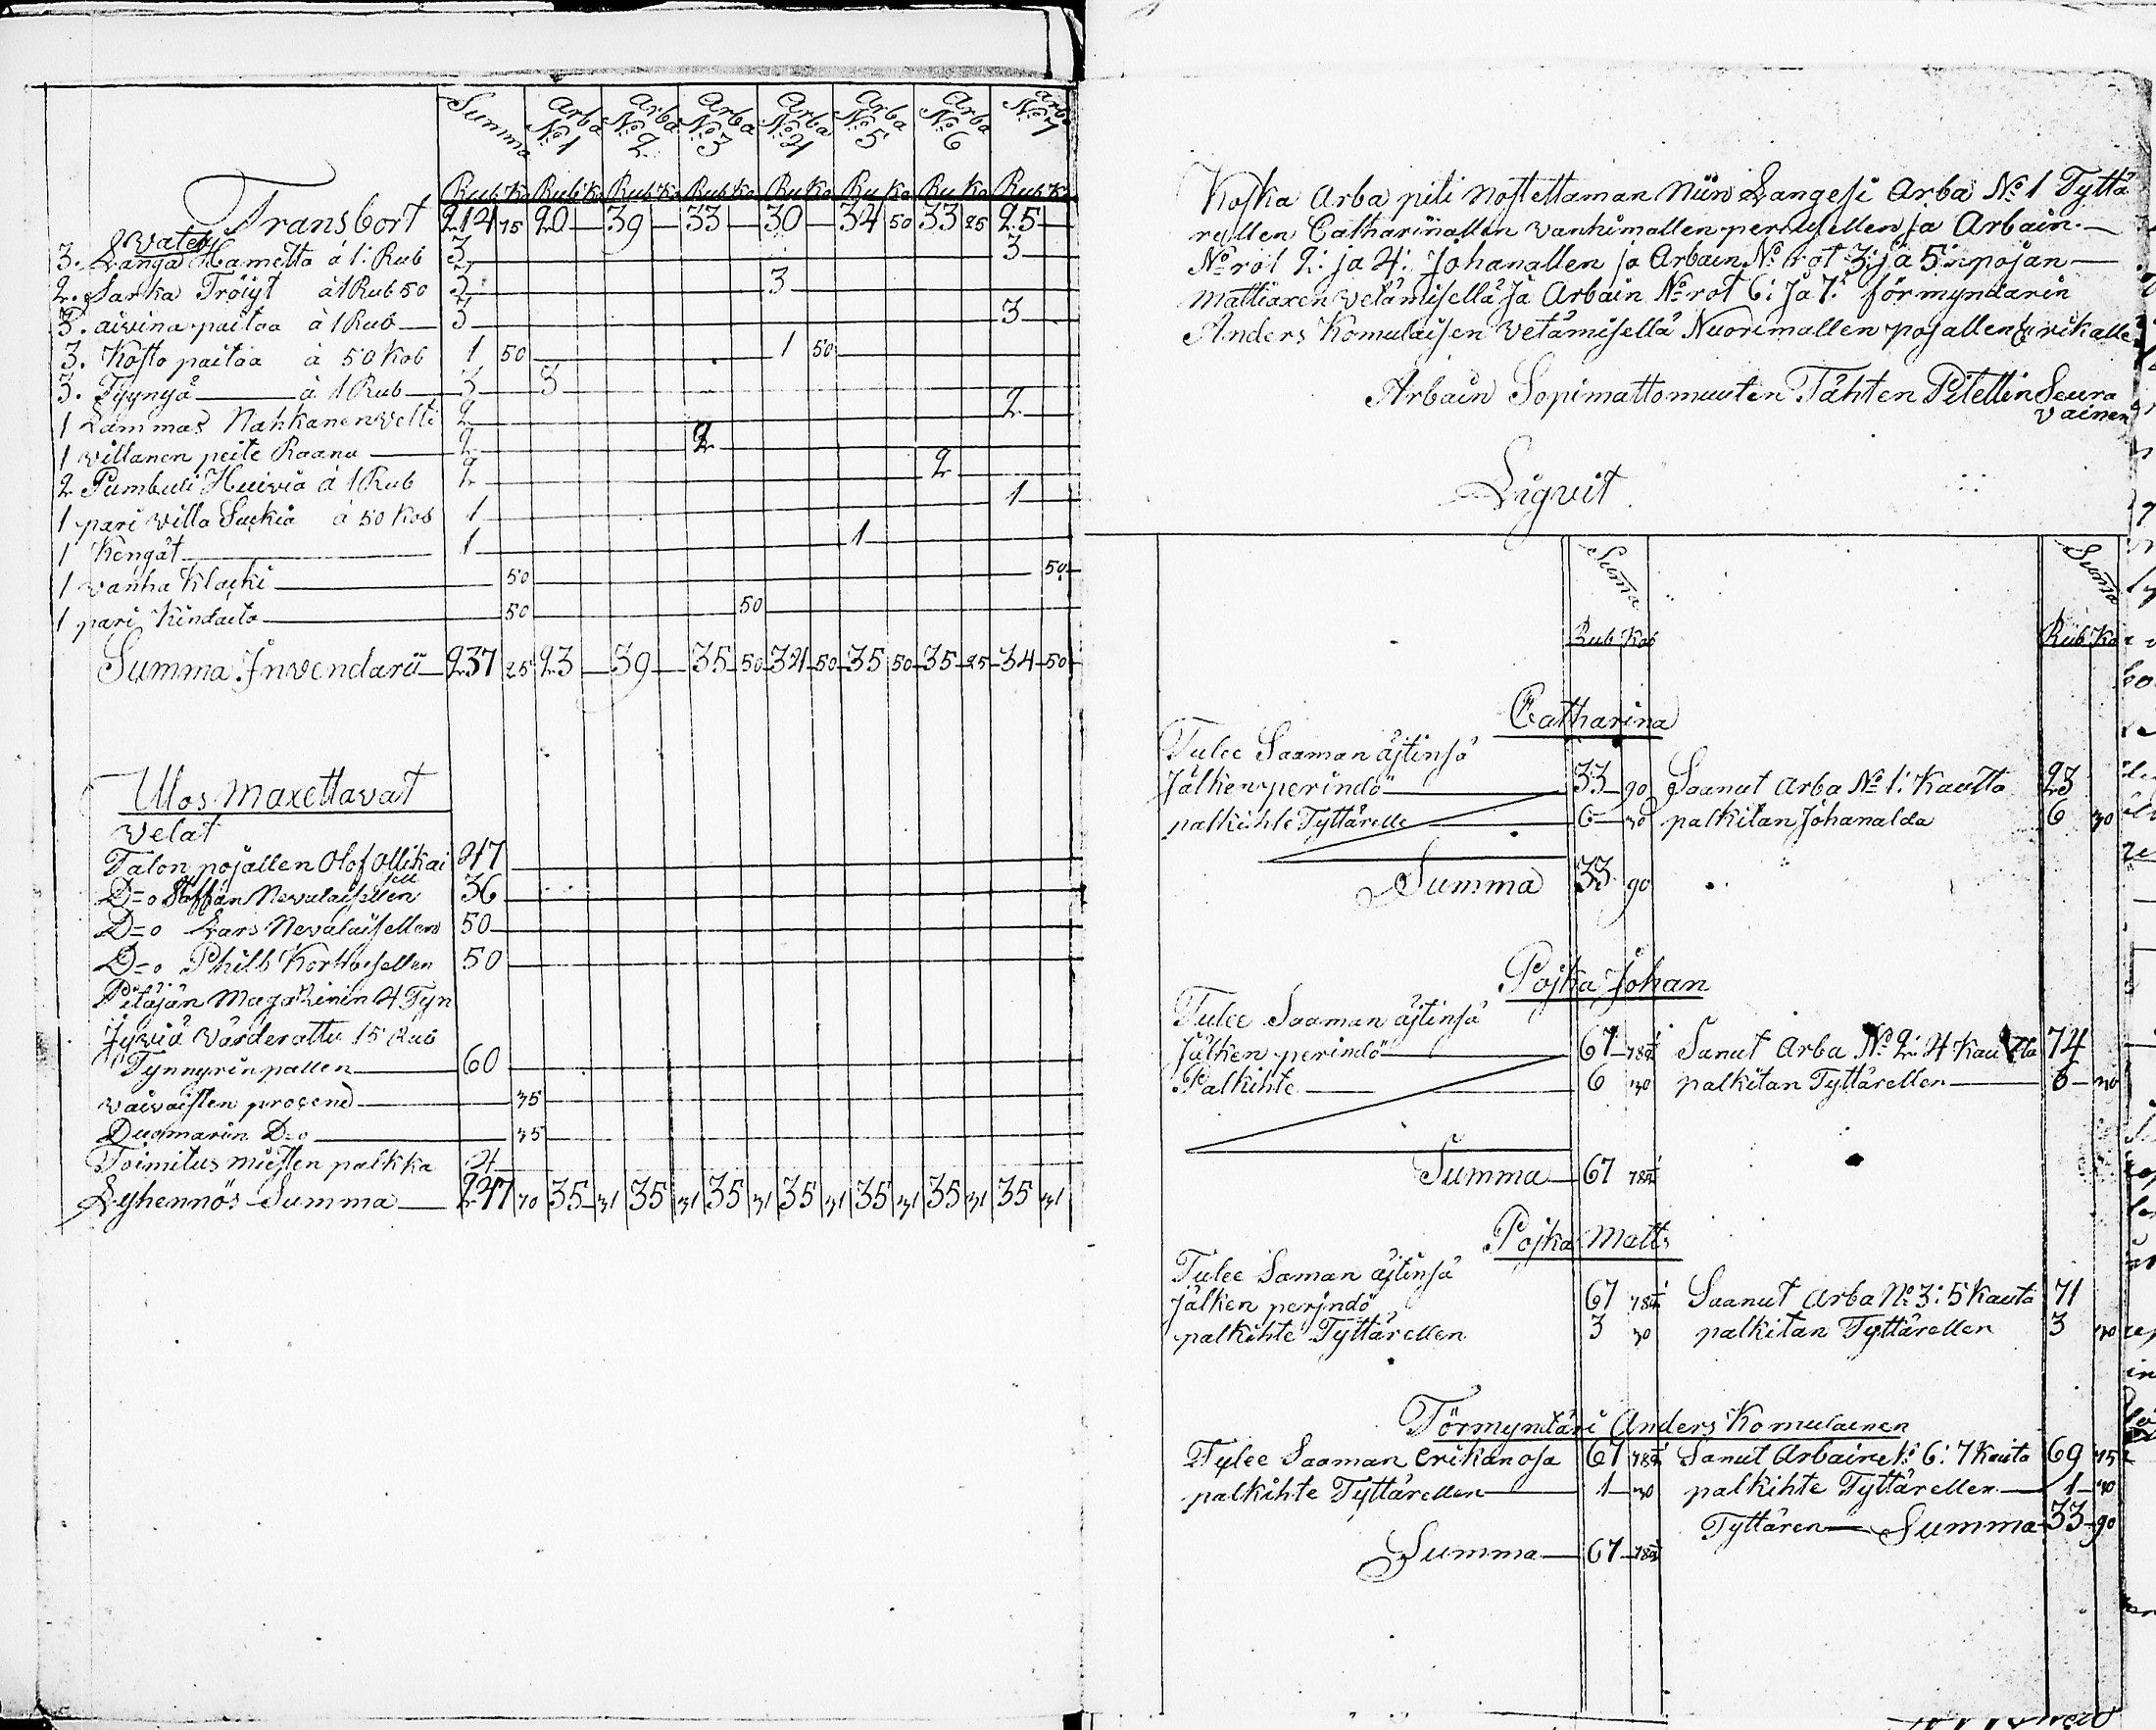 Summa Arba No 1 Arba No 2 Arba No 3 Arba No 4 Arba No 5 Arba No 6 Arba No 7
Rub Ko Rub Ko Rub Ko Rub Ko Ru Ko Ru Ko Ru Ko Rub Ko
Transport 214 75 20 — 39 — 33 — 30 — 34 50 33 25 25 —
Vatet
3. Langa Hametta á 1: Rub 3 3
2. Sarka Tröiyt á 1 Rub 50 3 3
3. aivina paitaa á 1 Rub 3 3
3. Kosto paitaa á 50 Kob 1 50 1 50
3. Tyynyä á 1 Rub 3 3
1 Lammas Nahkanen velti 2 2
1 villanen peite Raanu 2 2
2 Pumbuli Huivia á 1 Rub 2 2
1 pari villa Sukia á 50 Kob 1 1
1 Kengät 1 1
1 vanha Klacki 50 50
1 pari Kindaita 50 50
Summa Invendarii 237 25 23 — 39 — 35 50 34 50 35 50 35 25 34 50
Ulos maxettavat
Velat
Talon pojallen Olof Ollikai 47
sell
D=o Staffan Nevalaisellen 36
D=o Lars Nevalaisellen 50
D=o Philb Kortteisellen 50
Pitäjän Magazinin 4 Tyn
Jyviä Värderattu 15 Rub
Tynnyrin pallen 60
vaivaisten procend 35
Duomarin D=o 35
Toimitus miesten palkka 4
Lyhennös Summa 247 70 35 31 35 31 35 31 35 31 35 31 35 31 35 31
Koska Arba piti nostettaman Niin Langesi Arba No 1 Tyttä
rellen Catharinallen vanhimallen perilisellen ja Arbain
No rot 2: ja 4: Johanallen ja Arbain No rot 3: ja 5: pojan
Mattiaxen vetämisellä ja Arbain No rot 6: Ja 7: förmyndarin
Anders Komulaisen vetämisellä Nuorimallen pojallen Erikalle
Arbain Sopimattomuuten Tähten Pitettin Seura
vainen
Liqvit
Summa Summa
Rub Kob Rub Ko
Catharina
Tulee Saaman äjtinsä
Jälken perindö 33 90 Saanut Arba No 1: Kautta 23
palkihte Tyttärelle 6 30 palkitan Johanalda 6 30
Summa 33 90
Pojka Johan
Tulee Saaman äjtinsä
Jälken perindö 67 78 Sanut Arba No 2: 4 Kautta 74
Palkihte 6 30 palkitan Tyttärellen 6 30
Summa 67 78
Pojka Matts
Tulee Saman äjtinsä
Jälken perindö 67 78 Saanut Arba No 3: 5 Kauta 71
palkihte Tyttärellen 3 30 palkitan Tyttärellen 3 30
Förmyndäri Anders Komulainen
Tulee Saaman Erikan osa 67 78 Sanut Arbain No 6: 7 Kauta 69 75
palkihte Tyttärellen 1 30 palkihte Tyttärellen 1 30
Tyttären Summa 33 90
Summa 67 78